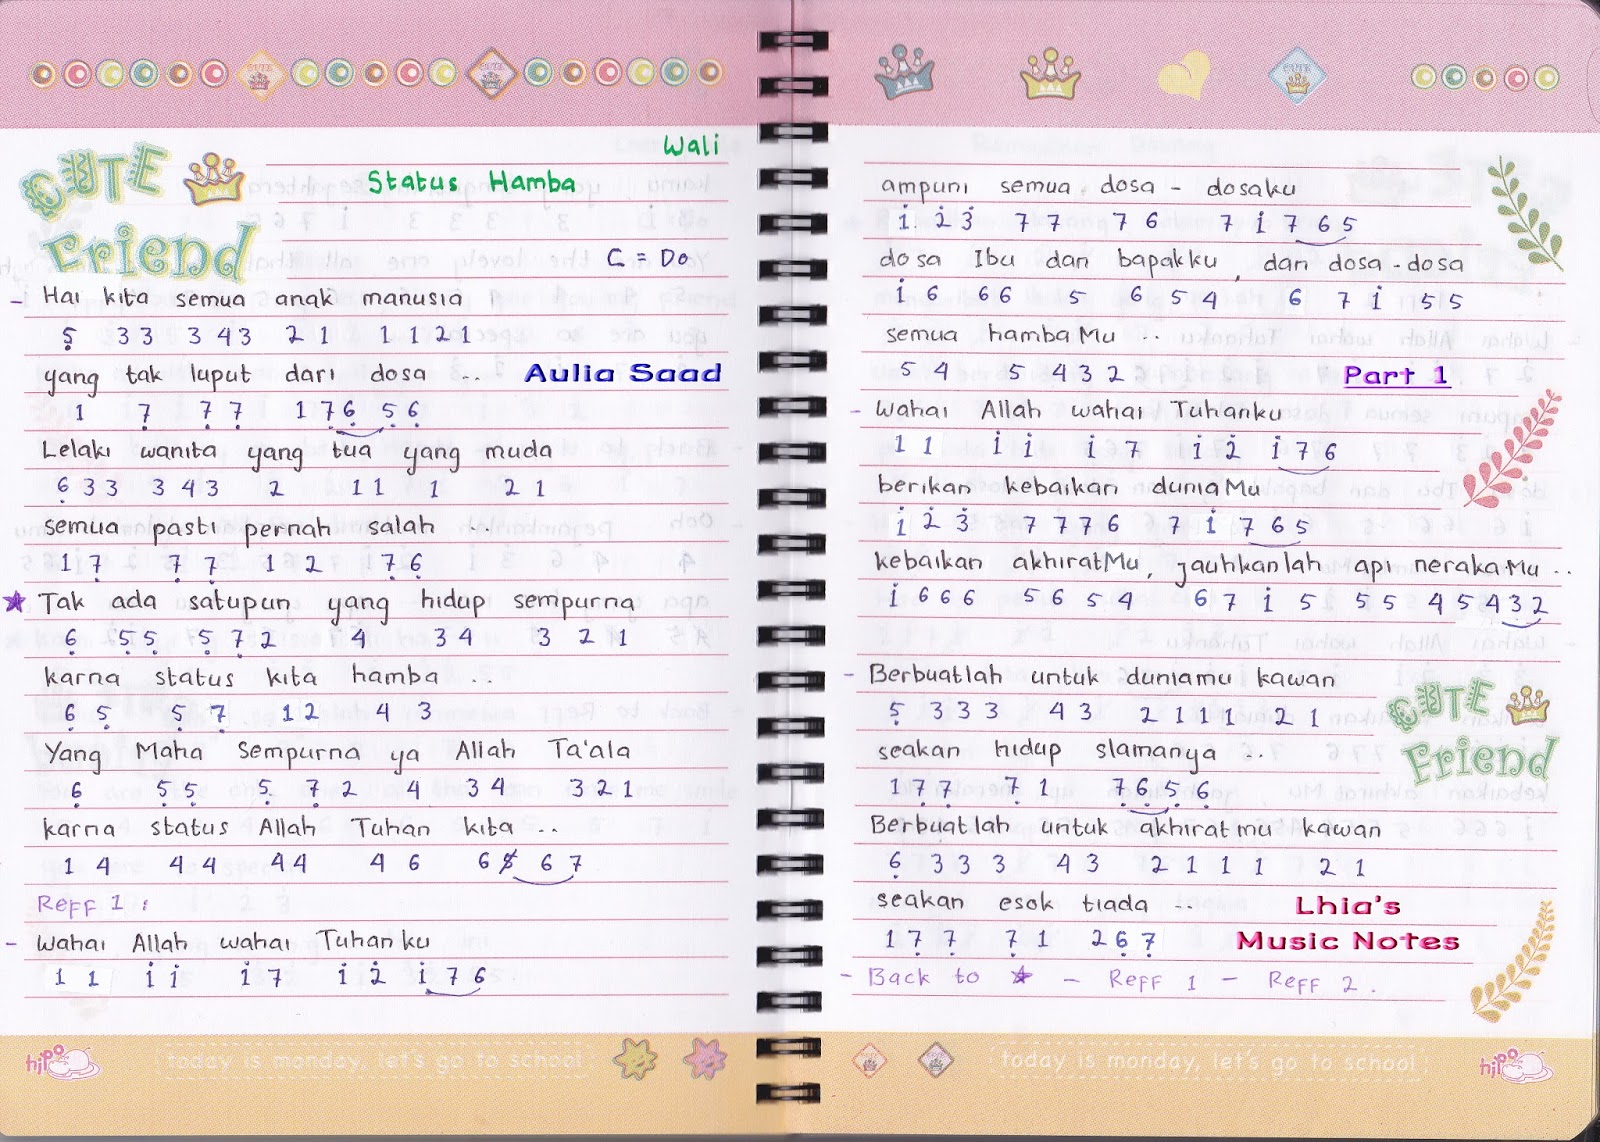 CUTE
Friend
Wali
Status Hamba
C = Do
- Hai kita semua anak manusia
5̣ 33 343 21 1121
yang tak luput dari dosa ..
Aulia Saad
1 7̣ 7̣7̣ 17̣6̣ 5̣6̣
Lelaki wanita yang tua yang muda
6̣33 343 2 11 1 21
semua pasti pernah salah ..
17̣ 7̣7̣ 12 7̣6̣
★ Tak ada satupun yang hidup sempurna
6̣ 5̣5̣ 5̣7̣2 4 34 3 21
karna status kita hamba ..
6̣5̣ 5̣7̣ 12 43
Yang Maha Sempurna ya Allah Ta'ala
6̣ 5̣5̣ 5̣ 7̣2 4 34 321
karna status Allah Tuhan kita ..
14 44 44 46 65 67
Reff 1 :
- Wahai Allah wahai Tuhanku
11 i̇i̇ i̇7 i̇2̇ i̇76
hipo
today is monday, let's go to school
CUTE
ampuni semua dosa - dosaku
i̇2̇3̇ 77 76 7i̇765
dosa Ibu dan bapakku, dan dosa-dosa
i̇6 66 5 654 6 7i̇ 55
semua hambaMu ..
54 5432
Part 1
- Wahai Allah wahai Tuhanku
11 i̇i̇ i̇7 i̇2̇ i̇76
berikan kebaikan duniaMu
i̇2̇3̇ 7776 7i̇765
kebaikan akhiratMu, jauhkanlah api nerakaMu ..
i̇666 5654 67i̇5 55 45432
- Berbuatlah untuk duniamu kawan
5̣333 43 2111 21
seakan hidup slamanya ..
17̣7̣ 7̣1 7̣6̣5̣6̣
Berbuatlah untuk akhiratmu kawan
6̣333 43 2111 21
seakan esok tiada ..
Lhia's
17̣7̣ 7̣1 26̣7̣
Music Notes
- Back to ★ - Reff 1 - Reff 2.
CUTE
Friend
today is monday, let's go to school
hipo